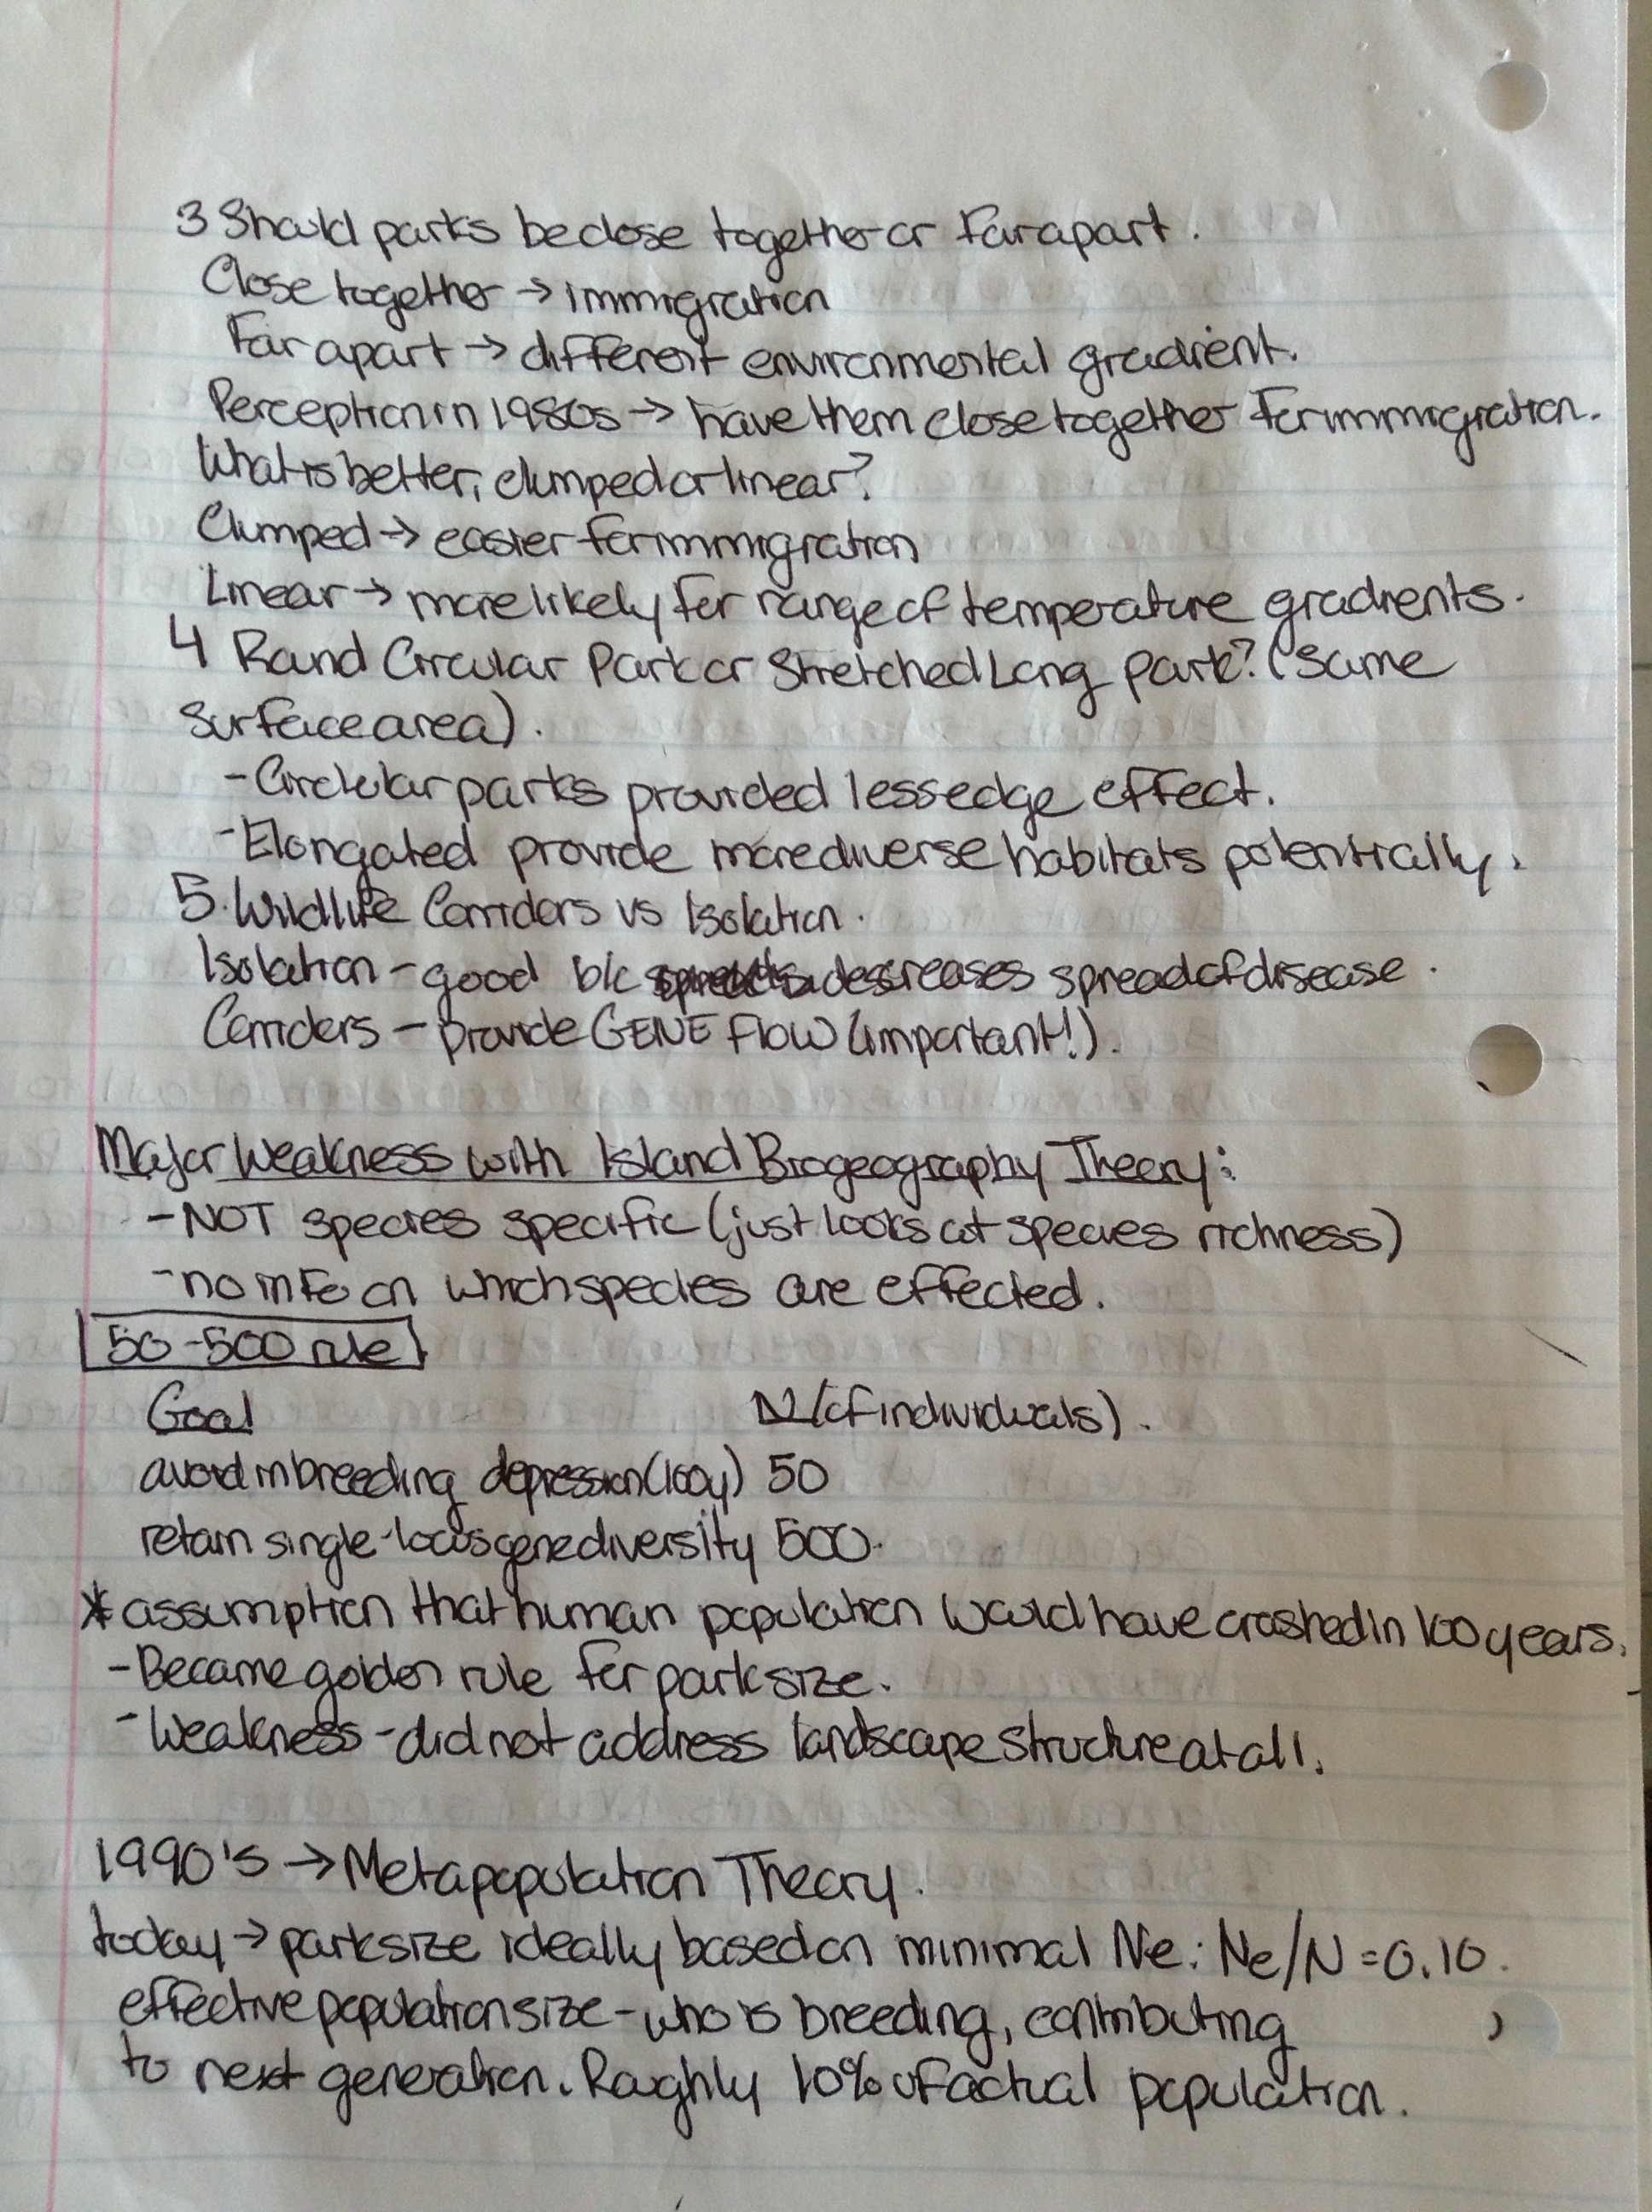 3 Should parks be close together or far apart.
Close together → immigration
Far apart → different environmental gradient.
Perception in 1980s → have them close together for immigration.
What is better, clumped or linear?
Clumped → easier for immigration
Linear → more likely for range of temperature gradients.
4 Round Circular Park or Stretched Long park? (Same
surface area).
- Circular parks provided less edge effect.
- Elongated provide more diverse habitats potentially.
5. Wildlife Corridors vs Isolation.
Isolation - good b/c decreases spread of disease.
Corriders - provide GENE FLOW (important!).
Major Weakness with Island Biogeography Theory:
- NOT species specific (just looks at species richness)
- no info on which species are effected.
50-500 rule
Goal N (of individuals).
avoid inbreeding depression (100y) 50
retain single-locus gene diversity 500.
* assumption that human population would have crashed in 100 years.
- Became golden rule for park size.
- Weakness - did not address landscape structure at all.
1990's → Metapopulation Theory.
today → park size ideally based on minimal Ne: Ne/N = 0.10.
effective population size - who is breeding, contributing
to next generation. Roughly 10% of actual population.